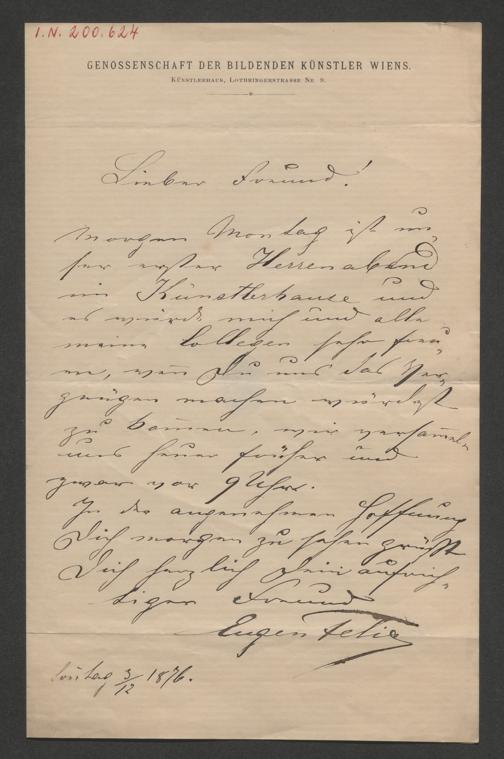 I. N. 200.624
GENOSSENSCHAFT DER BILDENDEN KÜNSTLER WIENS.
KÜNSTLERHAUS, LOTHRINGERSTRASSE NR 9.
Lieber Freund!
morgen Montag ist un„
ser erster Herrenabend
im Künstlerhause und
es würde mich und alle
meine Collegen sehr freu„
en, wen̄ Du uns das Ver„
gnügen machen würdest
zu kom̄en, wir versam̄eln
uns heuer früher und
zwar vor 9 Uhr.
In der angenehmen Hoffnung
Dich morgen zu sehen grüßt
Dich herzlich Dein aufrich„
tiger Freund
Eugen Felix
Sontag 3/12 1876.